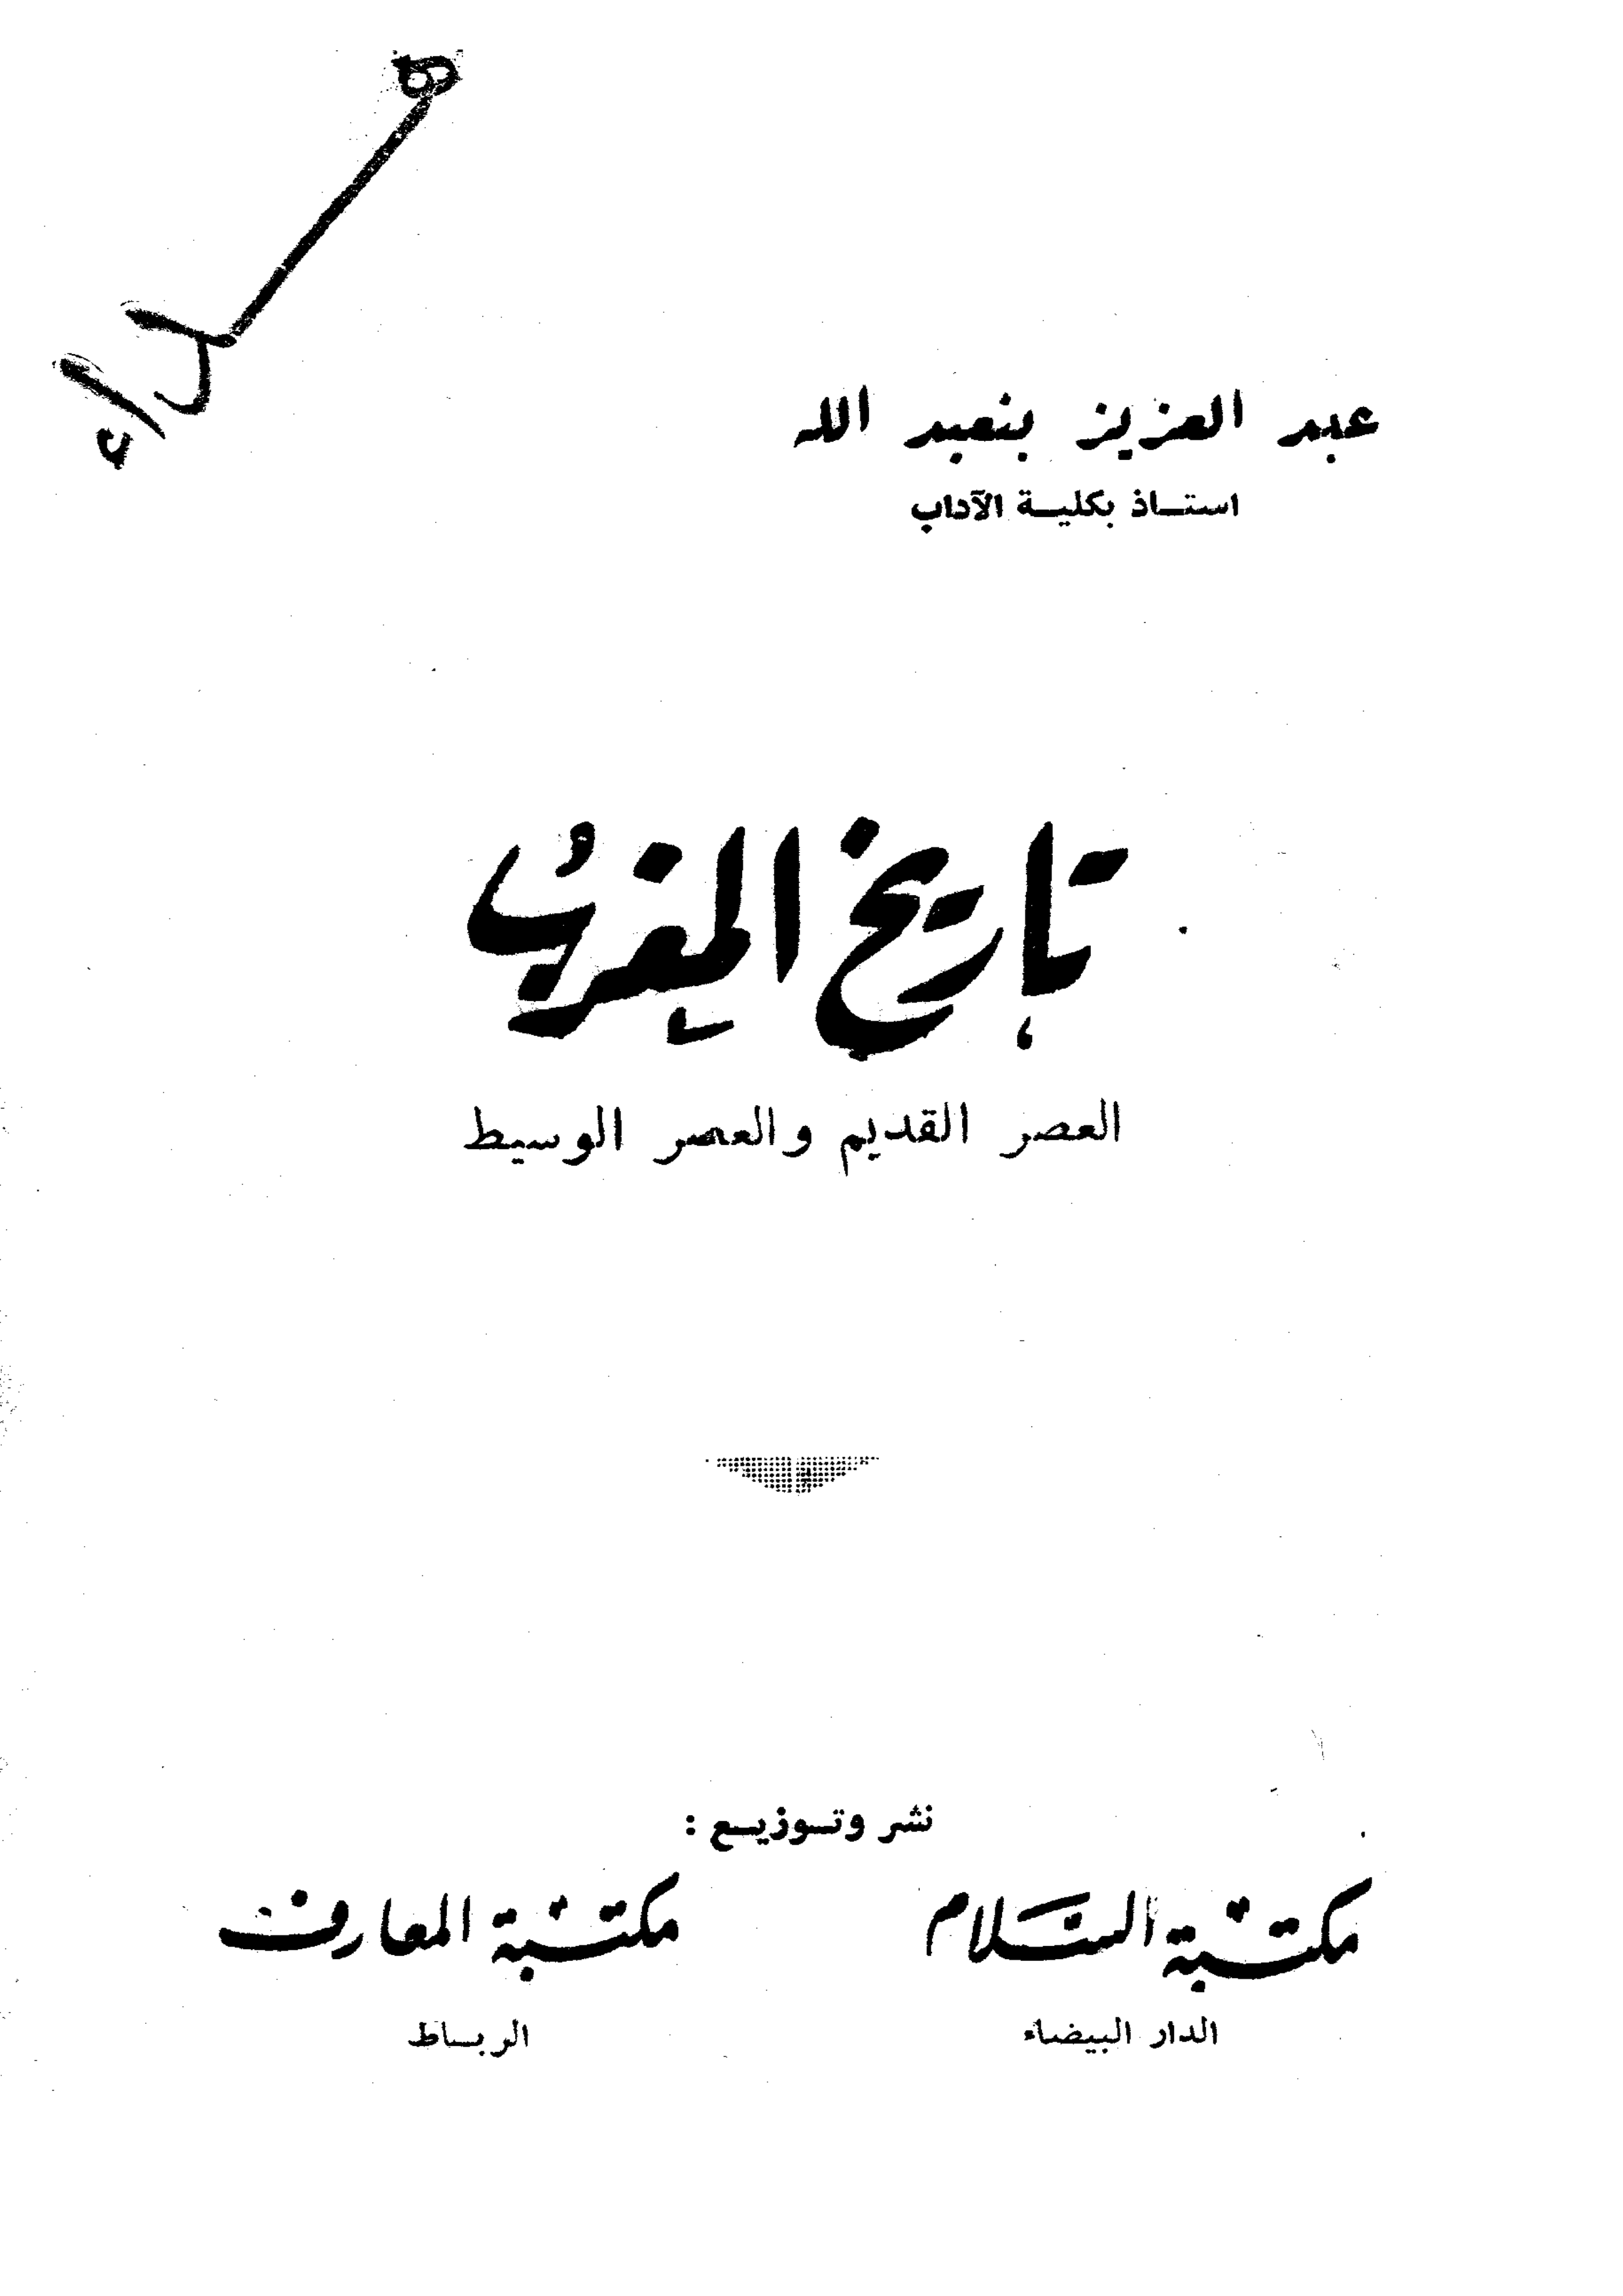 هداء
عبد العزيز بنعبد الله
استاذ بكلية الآداب
تاريخ المغرب
العصر القديم والعصر الوسيط
نشر وتوزيع :
مكتبة السلام
الدار البيضاء
مكتبة المعارف
الرباط